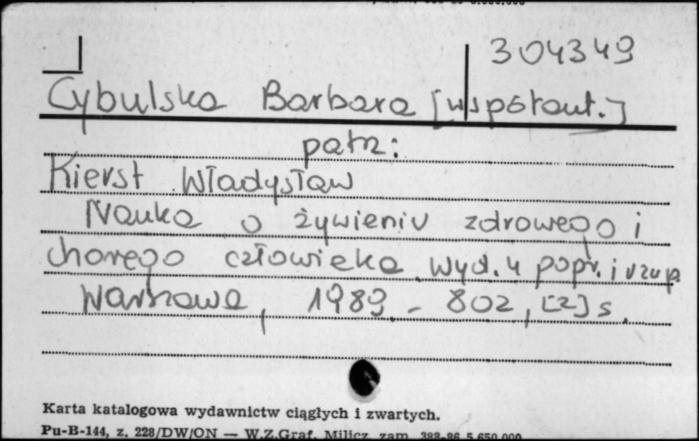 304349
Cybulska Barbara [współaut.]
patrz:
Kierst Władysław
Nauka o żywieniu zdrowego i
chorego człowieka. Wyd. 4 popr. i uzup
Warszawa, 1989. - 802, [2] s.
Karta katalogowa wydawnictw ciągłych i zwartych.
Pu-B-144, z. 228/DW/ON — W.Z.Graf. Milicz, zam. 388-86 5.650.000